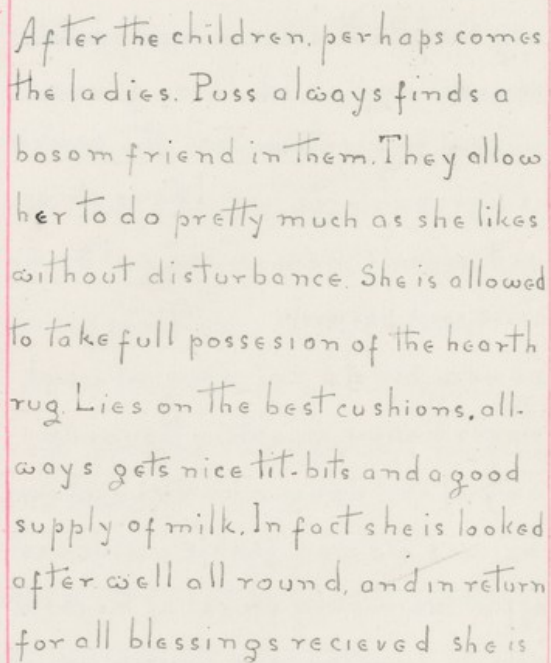 After the children. perhaps comes
the ladies. Puss always finds a
bosom friend in them. They allow
her to do pretty much as she likes
without disturbance. She is allowed
to take full possesion of the hearth
rug. Lies on the best cushions, all-
ways gets nice tit-bits and a good
supply of milk. In fact she is looked
after well all round, and in return
for all blessings recieved she is